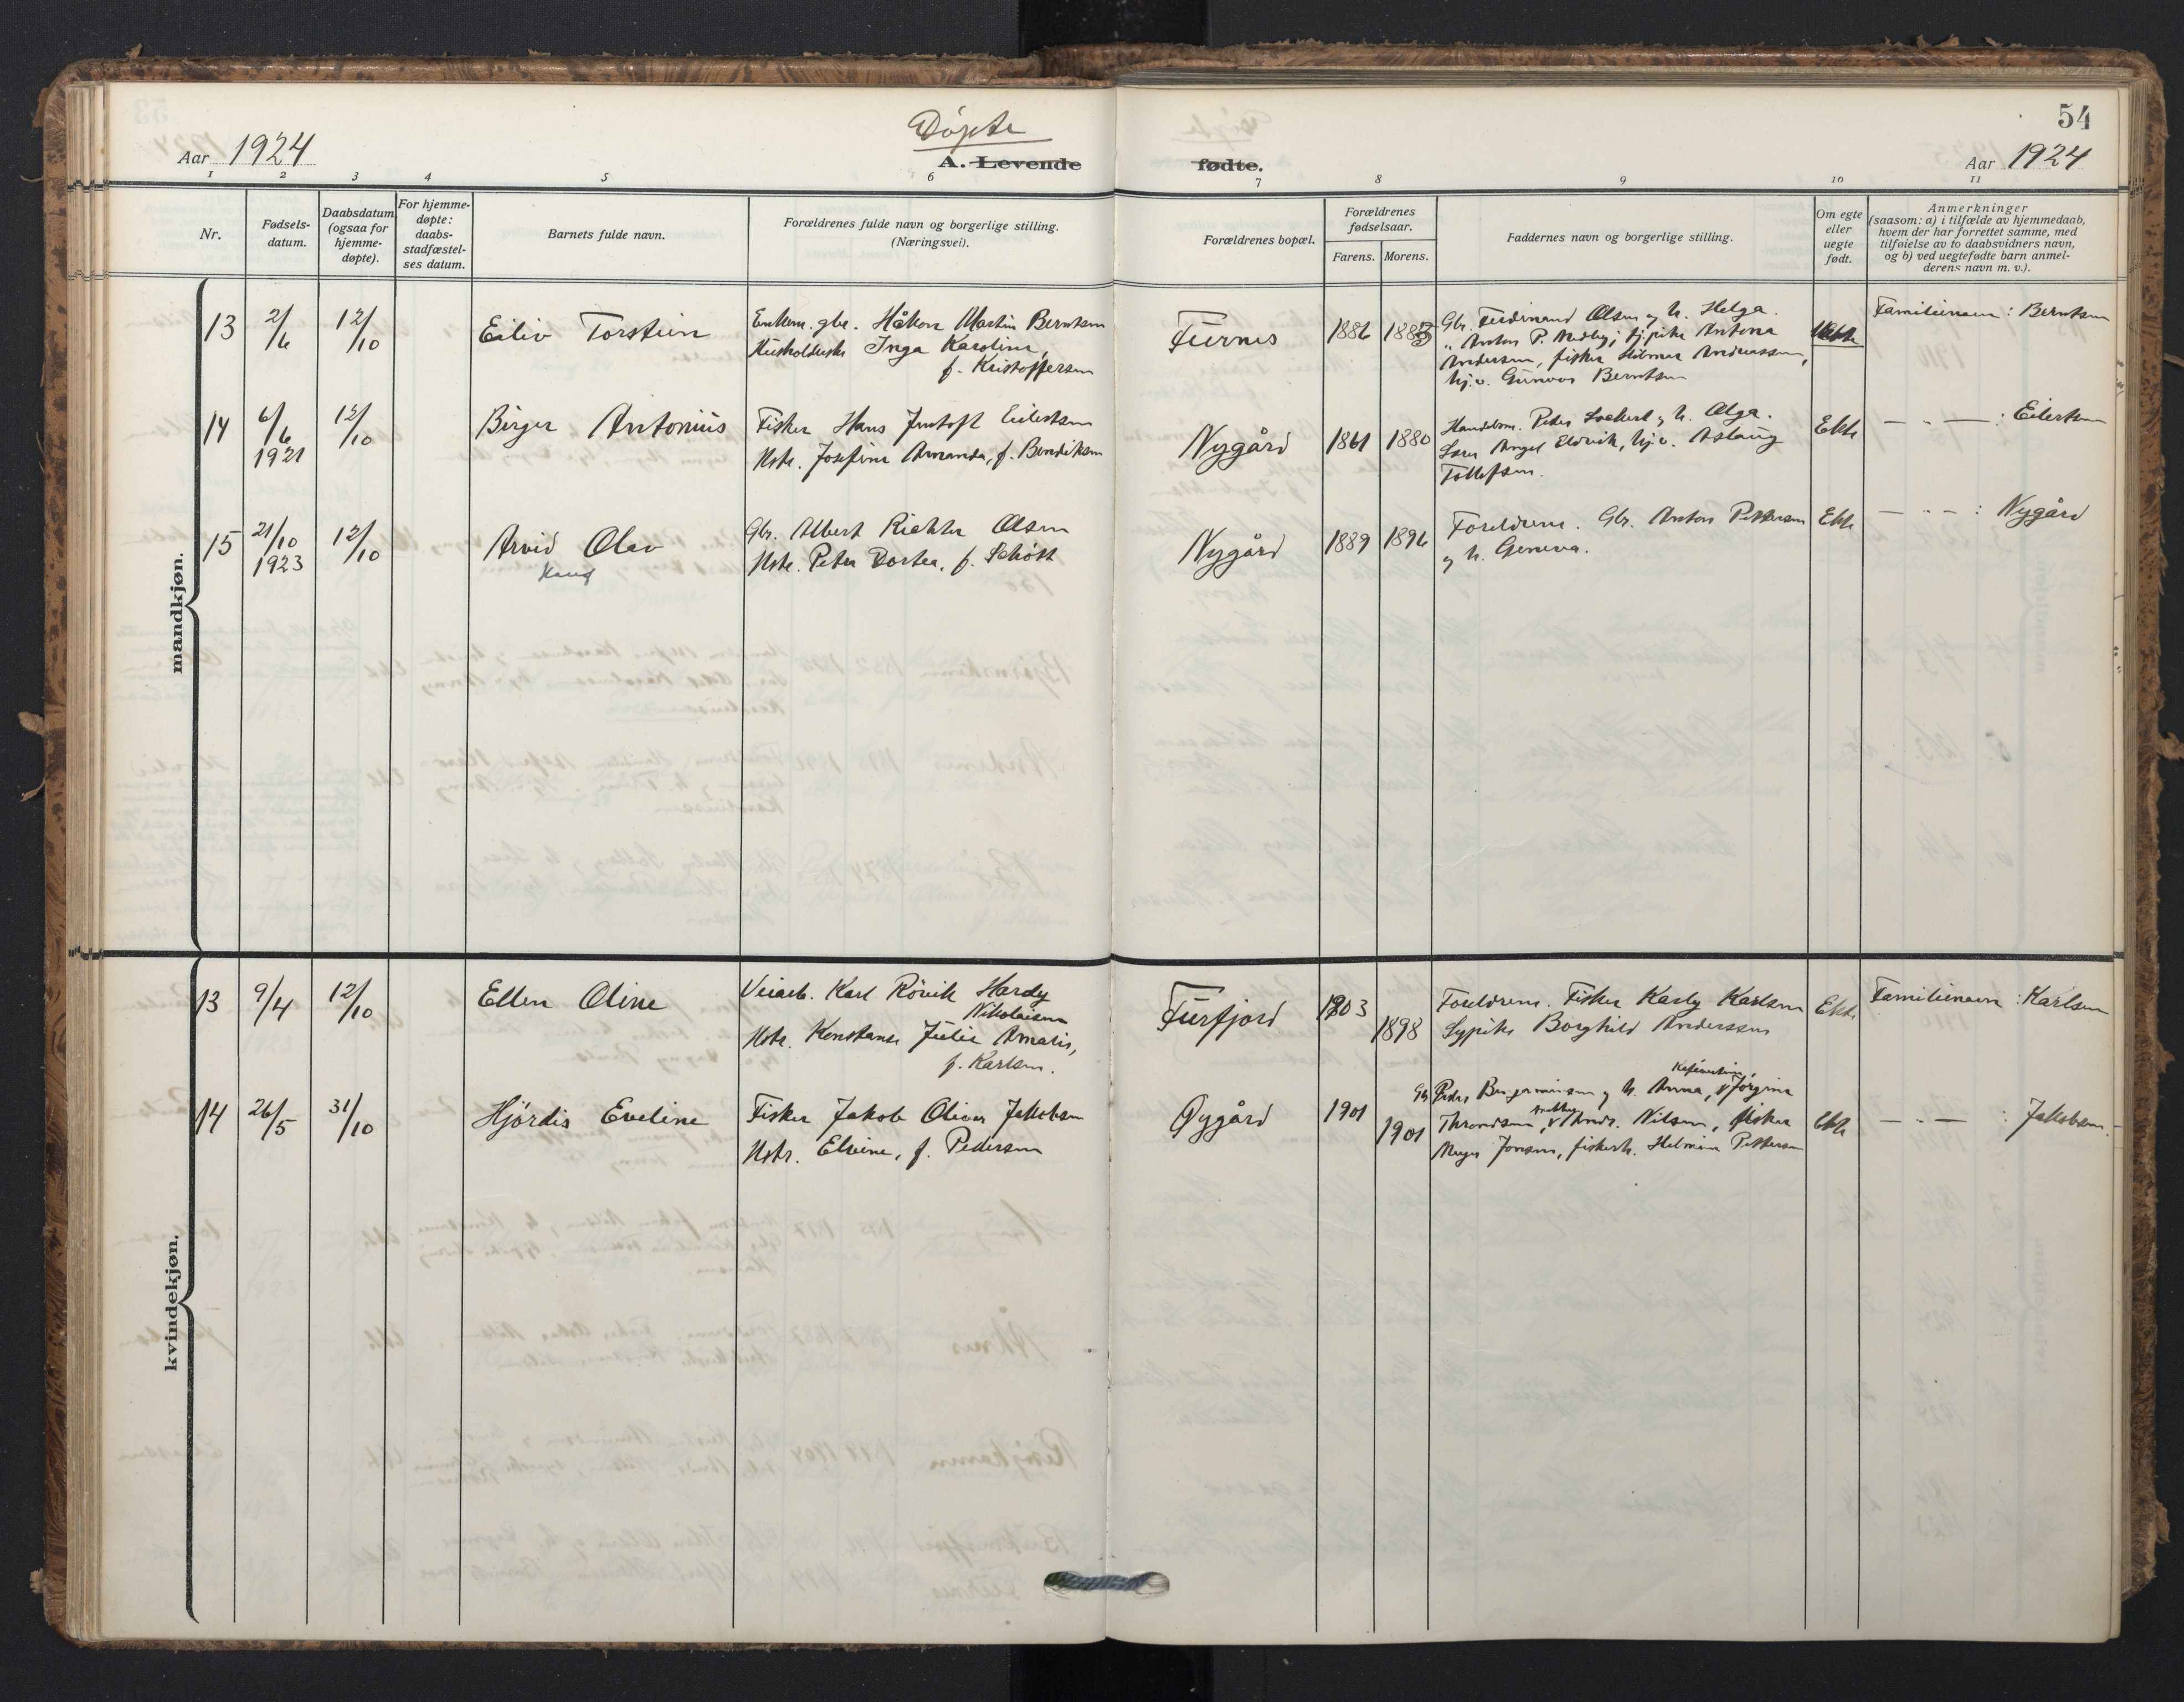 54
Aar 1924
Døpte
A. Levende
fødte.
Aar 1924
1 2 3 4 5 6 7 8 9 10 11
Nr.
Fødsels-
datum.
Daabsdatum
(ogsaa for
hjemme-
døpte).
For hjemme-
døpte:
daabs-
stadfæstel-
ses datum.
Barnets fulde navn.
Forældrenes fulde navn og borgerlige stilling.
(Næringsvei).
Forældrenes bopæl.
Forældrenes
fødselsaar.
Farens. Morens.
Faddernes navn og borgerlige stilling.
Om egte
eller
uegte
født.
Anmerkninger
(saasom: a) i tilfælde av hjemmedaab,
hvem der har forrettet samme, med
tilføielse av to daabsvidners navn,
og b) ved uegtefødte barn anmel-
derens navn m. v.).
mandkjøn.
13 2/6 12/10
Eiliv Torstein
Enkem. gbr. Håkon Martin Berntsen
Husholderske Inga Karoline,
f. Kristoffersen
Furnes
1886 1883
Gbr. Ferdinand Olsen og h. Helga.
" Anton P. Nedby; sypike Antona
Andersen, fisker Hilmar Andreassen,
hj.v. Gunvor Berntsen
Uekte
Familienavn: Berntsen
14 6/6 1921 12/10
Birger Antonius
Fisker Hans Jentoft Eilertsen
Hstr. Josefine Amanda, f. Bendiksen
Nygård
1861 1880
Handelsm. Peder Lockert og h. Olga.
Angel Eldevik, hj.v. Aslaug
Tollefsen.
Ekte
— " — : Eilertsen
15 21/10 1923 12/10
Arvid Olav
Haug
Gbr. Albert Rickter Olsen
Hstr. Petra Dortea, f. Schött
Nygård
1889 1896
Foreldrene. Gbr. Anton Pettersen
og h. Geneva.
Ekte
— " — : Nygård
kvindekjøn.
13 9/4 12/10
Ellen Oline
Veiarb. Karl Rövik Hardy
Nikolaisen
Hstr. Konstanse Julie Amalie,
f. Karlsen.
Furfjord
1903
1898
Foreldrene. Fisker Karly Karlsen
Sypike Borghild Anderssen
Ekte
Familienavn: Karlsen
14 26/5 31/10
Hjördis Eveline
Fisker Jakob Oliver Jakobsen
Hstr. Elvine, f. Pedersen
Nygård
1901
1901
Gbr. Peder Benjaminsen og h. Anna, Jörgine
Throndsen, Andr. Nilsen, fisker
Meyer Jonsen, fiskerh. Helmine Pettersen
Ekte
— " — : Jakobsen.